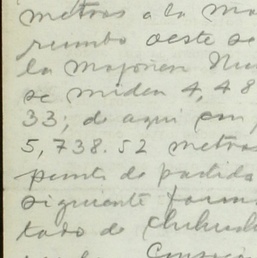 metros a la mo
rumbo oeste se
la mojonera Nu
se miden 4,48
33; de aqui con
5,738.52 metros
punto de partida
siguiente forma
tado de Chihuah